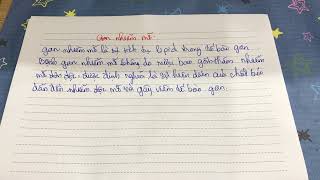 Gan nhiễm mỡ.
gan nhiễm mỡ là sự tích tụ lipid trong tế bào gan
Bệnh gan nhiễm mỡ không do rượu bao gồm nhiễm
mỡ đơn độc. được định nghĩa là sự hiện diện của chất béo
dẫn đến nhiễm độc mỡ và gây viêm tế bào gan.